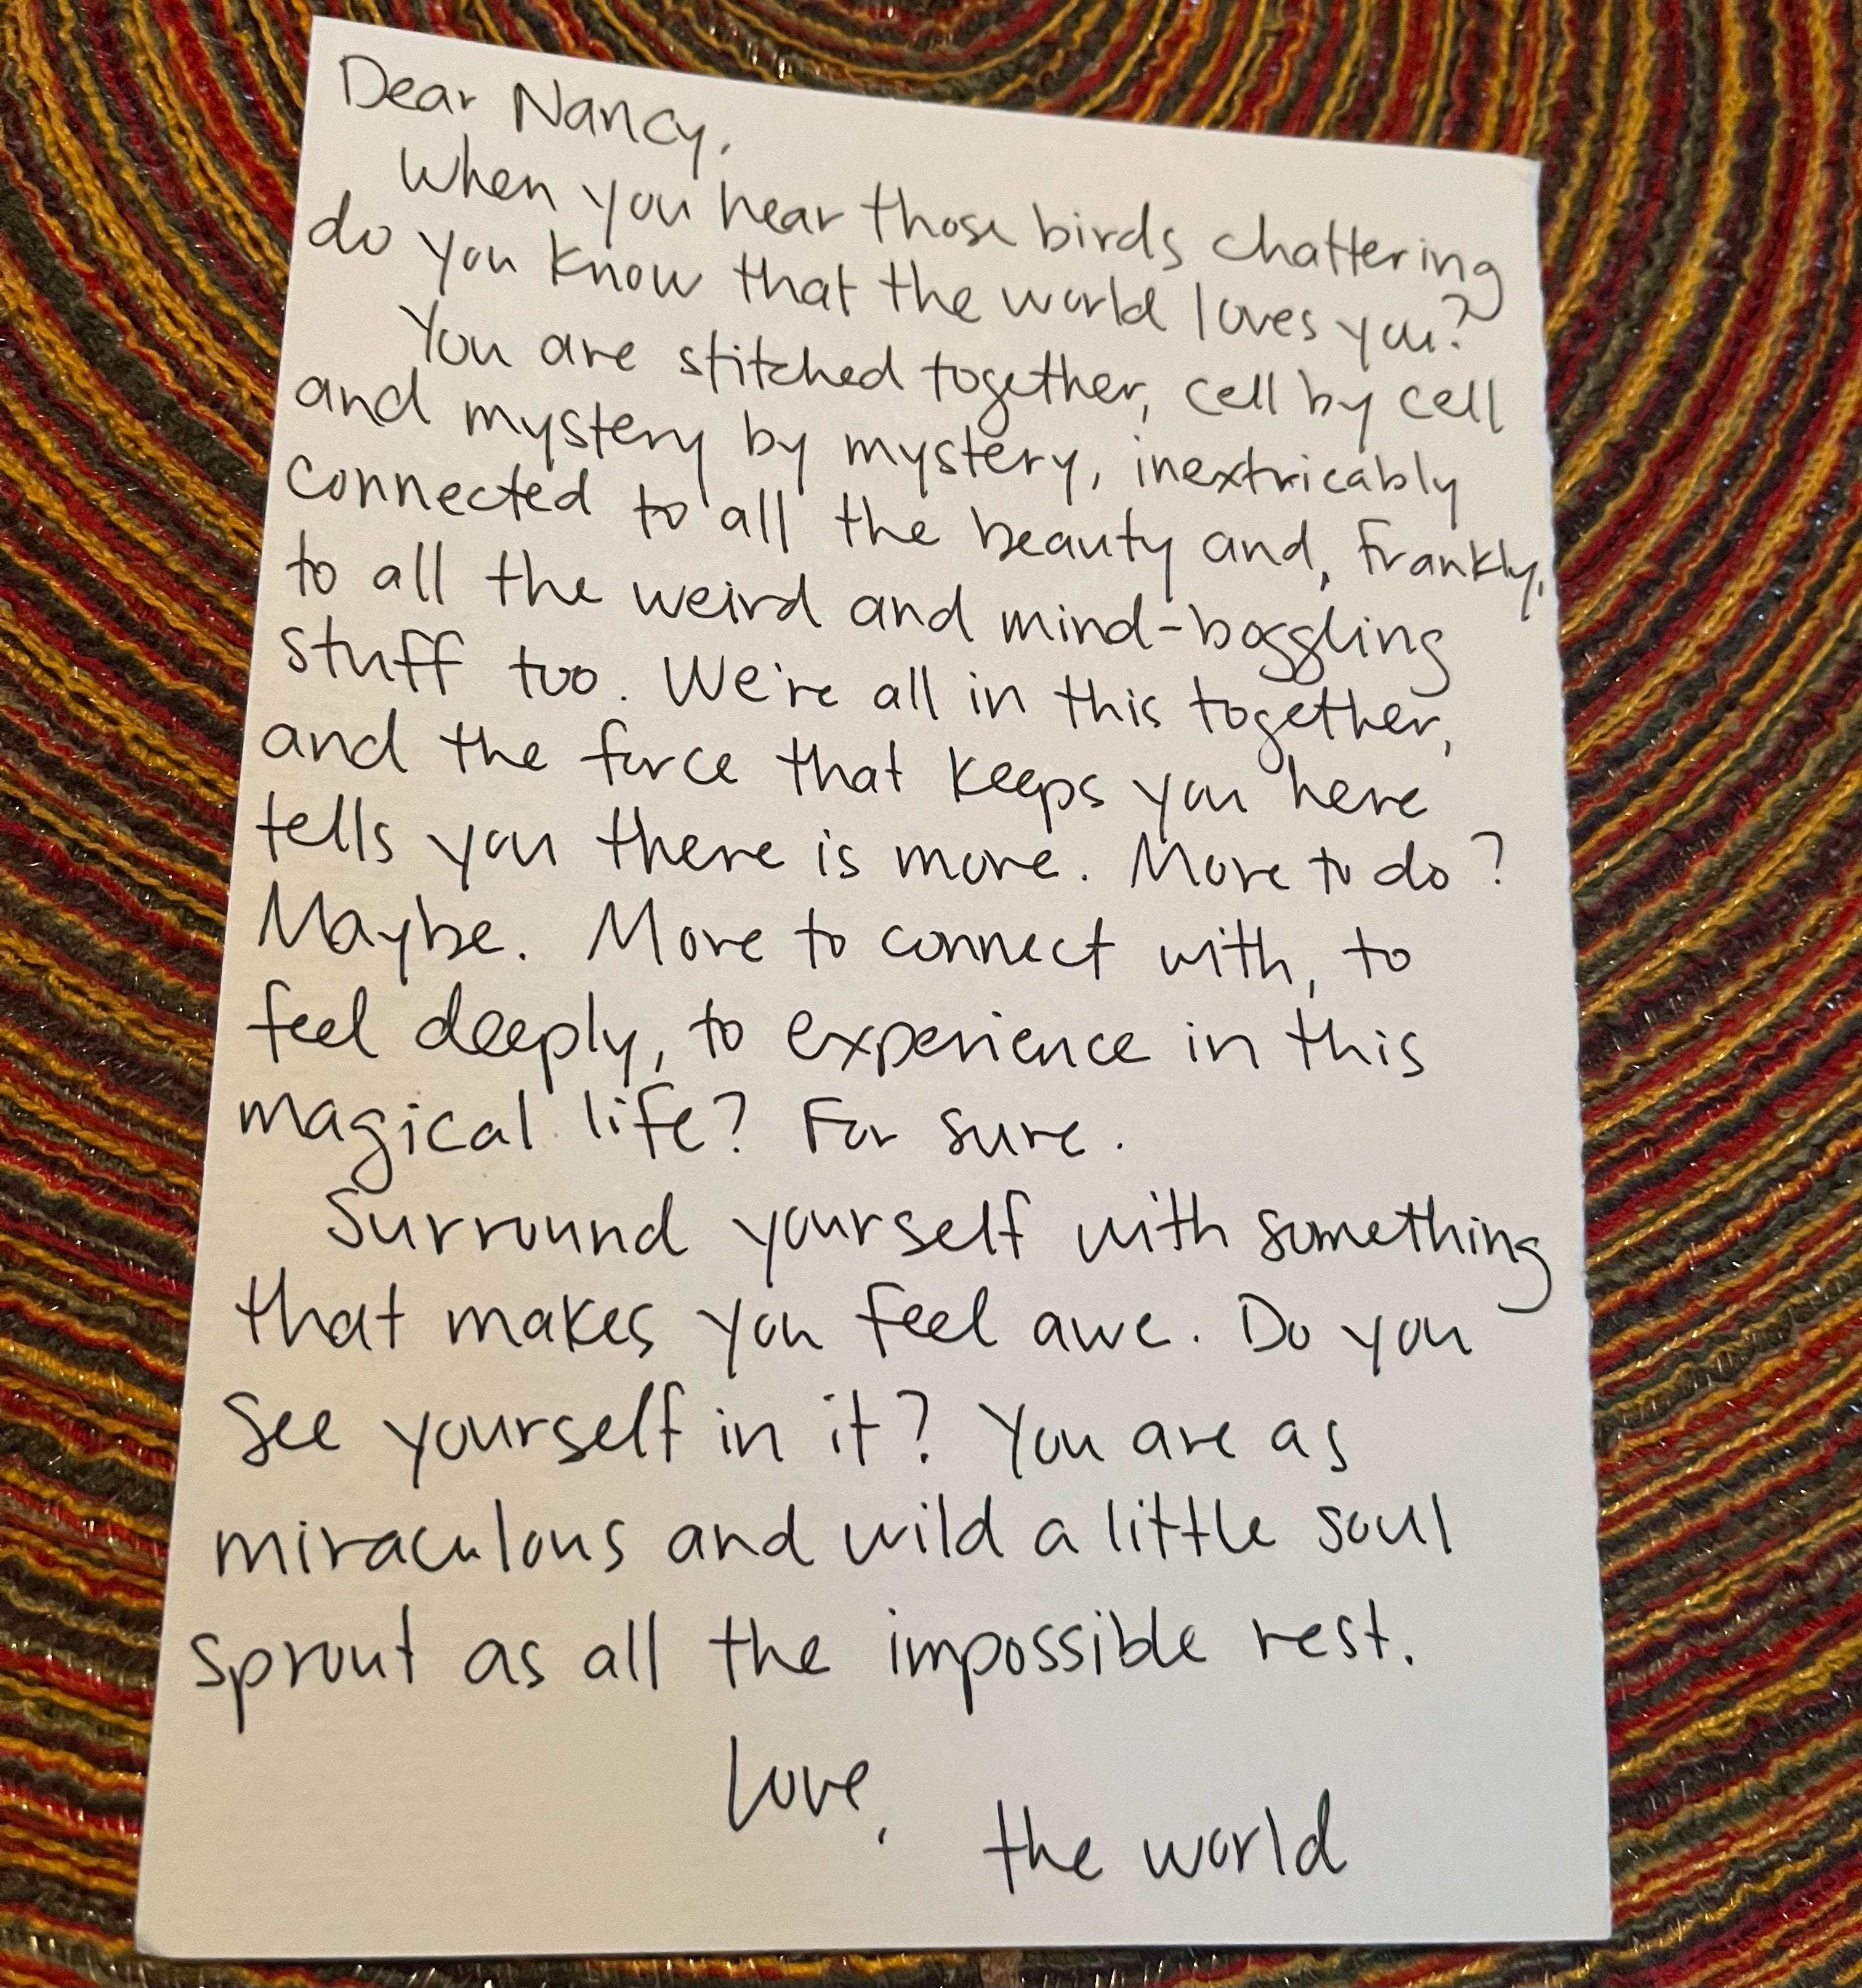 Dear Nancy,
When you hear those birds chattering
do you know that the world loves you?
You are stitched together, cell by cell
and mystery by mystery, inextricably
connected to all the beauty and, frankly,
to all the weird and mind-boggling
stuff too. We're all in this together,
and the force that keeps you here
tells you there is more. More to do?
Maybe. More to connect with, to
feel deeply, to experience in this
magical life? For sure.
Surround yourself with something
that makes you feel awe. Do you
see yourself in it? You are as
miraculous and wild a little soul
sprout as all the impossible rest.
Love,
the world